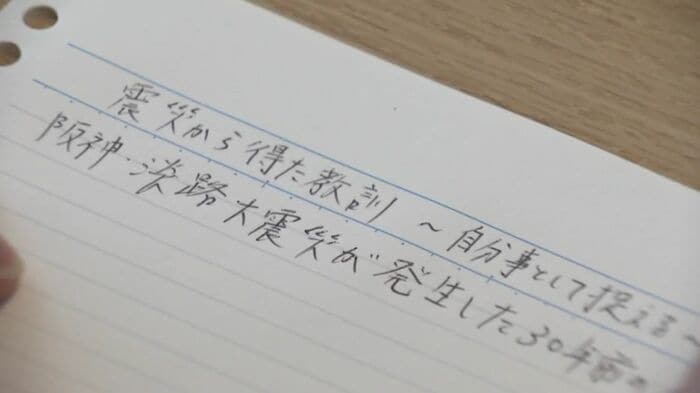 震災から得た教訓 ~自分事として捉える~
阪神・淡路大震災が発生した30年前の